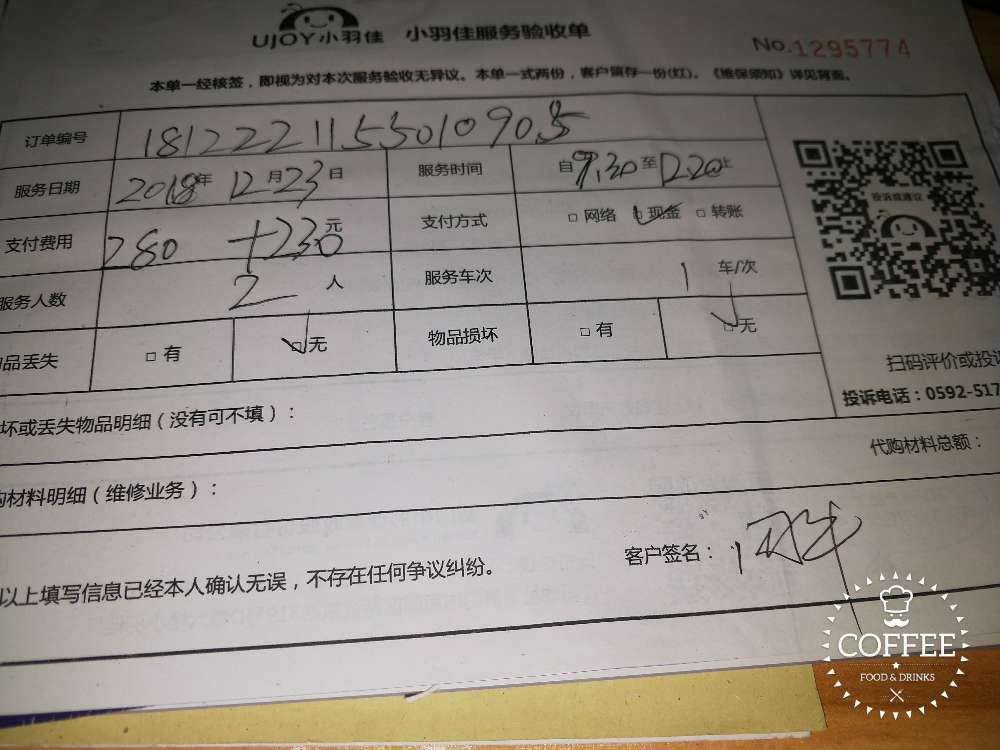 UJOY小羽佳 小羽佳服务验收单
No.1295774
本单一经核签，即视为对本次服务验收无异议。本单一式两份，客户留存一份(红)。《维保须知》详见背面。
订单编号 181222115501090
服务日期 2018年12月23日 服务时间 自9.30至12.20止
支付费用 280+230元 支付方式 □网络 □现金 □转账
服务人数 2人 服务车次 1 车/次
品丢失 □有 □无 物品损坏 □有 □无
投诉或建议
扫码评价或投
投诉电话：0592-517
坏或丢失物品明细（没有可不填）：
代购材料总额：
购材料明细（维修业务）：
以上填写信息已经本人确认无误，不存在任何争议纠纷。 客户签名：
COFFEE
FOOD & DRINKS